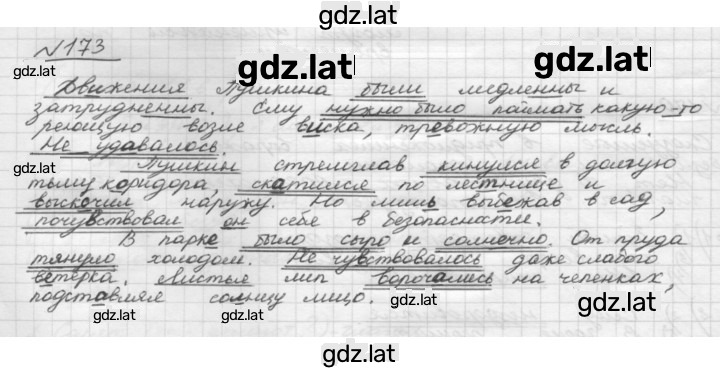 gdz.lat
№173
gdz.lat
gdz.lat
gdz.lat
Движения Пушкина были медленны и
затрудненны. Ему нужно было поймать какую-то
реющую возле виска, тревожную мысль.
Не удавалось.
gdz.lat
gdz.lat
gdz.lat
Пушкин стремглав кинулся в долгую
тьму коридора, скатился по лестнице и
выскочил наружу. Но лишь выбежав в сад,
почувствовал он себе в безопасности.
В парке было сыро и солнечно. От пруда
тянуло холодом. Не чувствовалось даже слабого
ветерка. Листья лип ворочались на черенках,
подставляя солнцу лицо.
gdz.lat
gdz.lat
gdz.lat
gdz.lat
gdz.lat